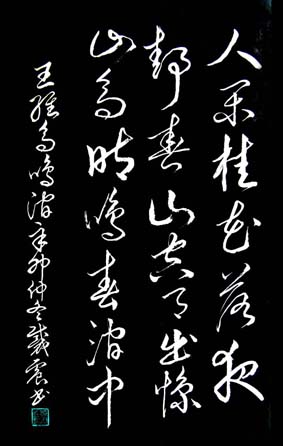 人闲桂花落夜
静春山空月出惊
山鸟时鸣春涧中
王维鸟鸣涧辛卯仲冬戴震书